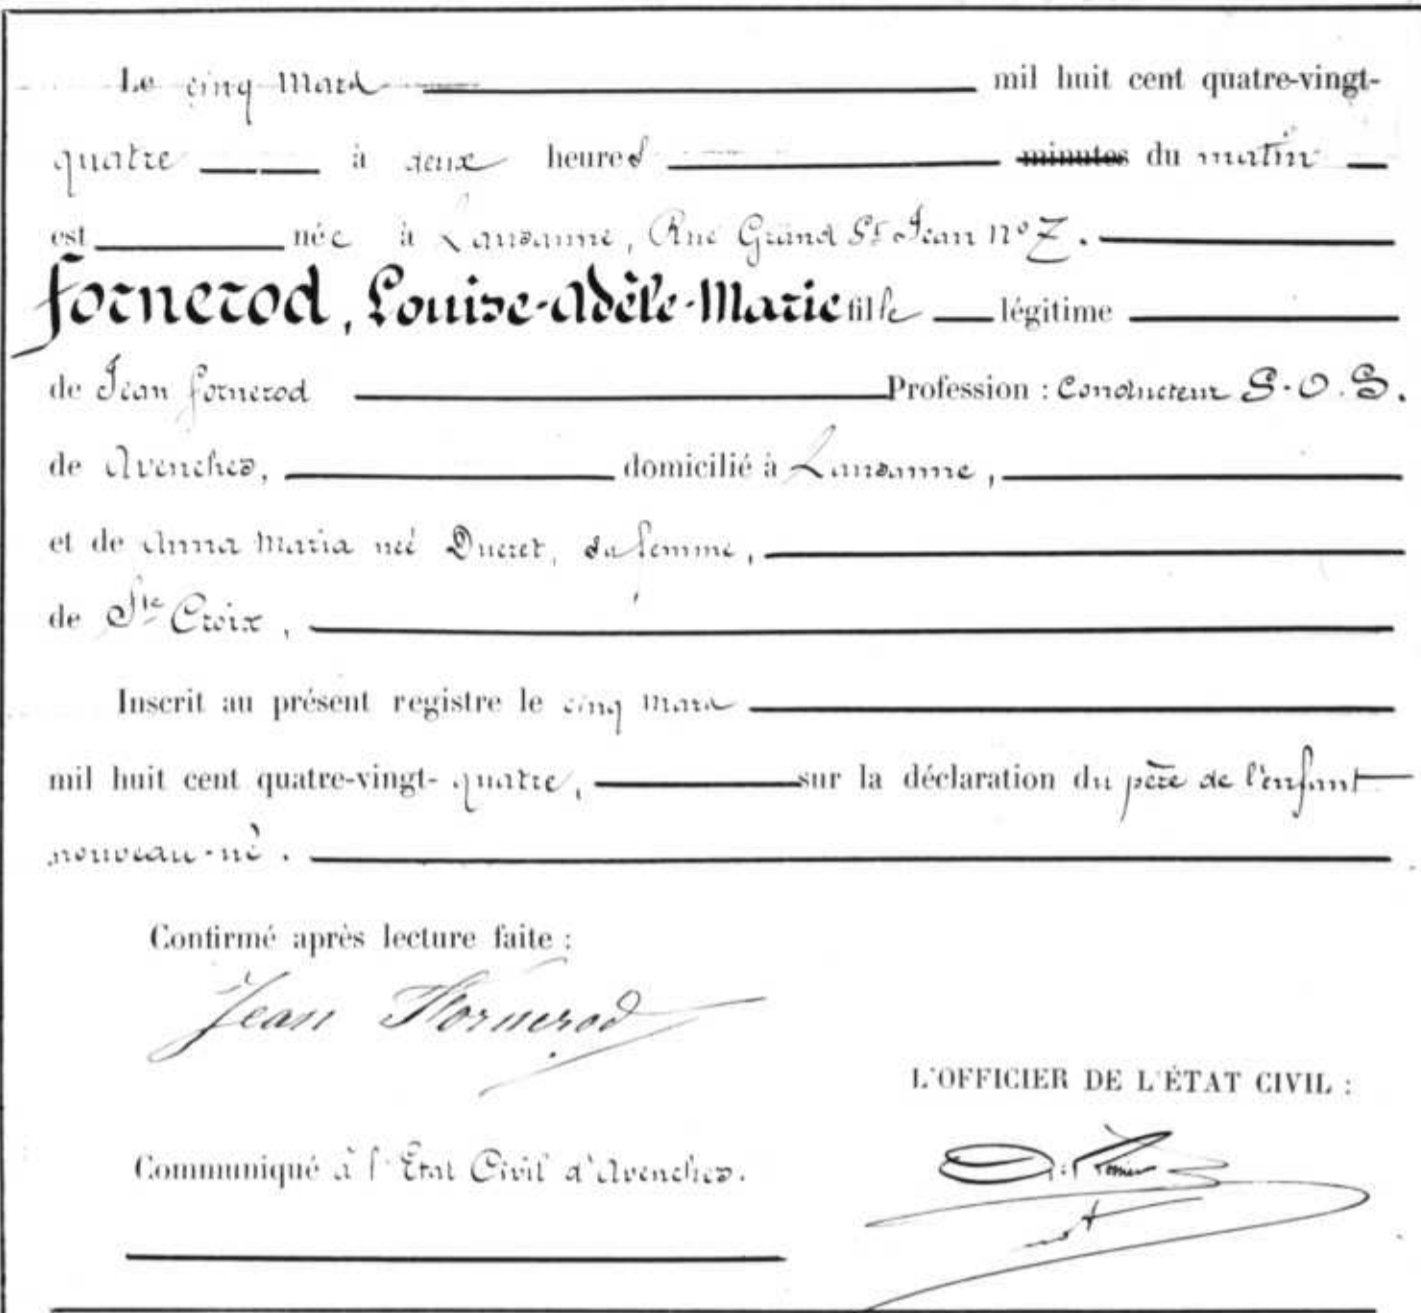 Le cinq Mars mil huit cent quatre-vingt-
quatre à deux heures minutes du matin
est née à Lausanne, Rue Grand St Jean no 7.
Fornerod, Louise-Adèle-Marie fille légitime
de Jean Fornerod Profession : Conducteur S.O.S.
de Avenches, domicilié à Lausanne,
et de Anna Maria neé Ducret, sa femme,
de Ste Croix,
Inscrit au présent registre le cinq Mars
mil huit cent quatre-vingt- quatre, sur la déclaration du père de l'enfant
nouveau-né.
Confirmé après lecture faite :
Jean Fornerod
L'OFFICIER DE L'ÉTAT CIVIL :
Communiqué à l'État Civil d'Avenches.